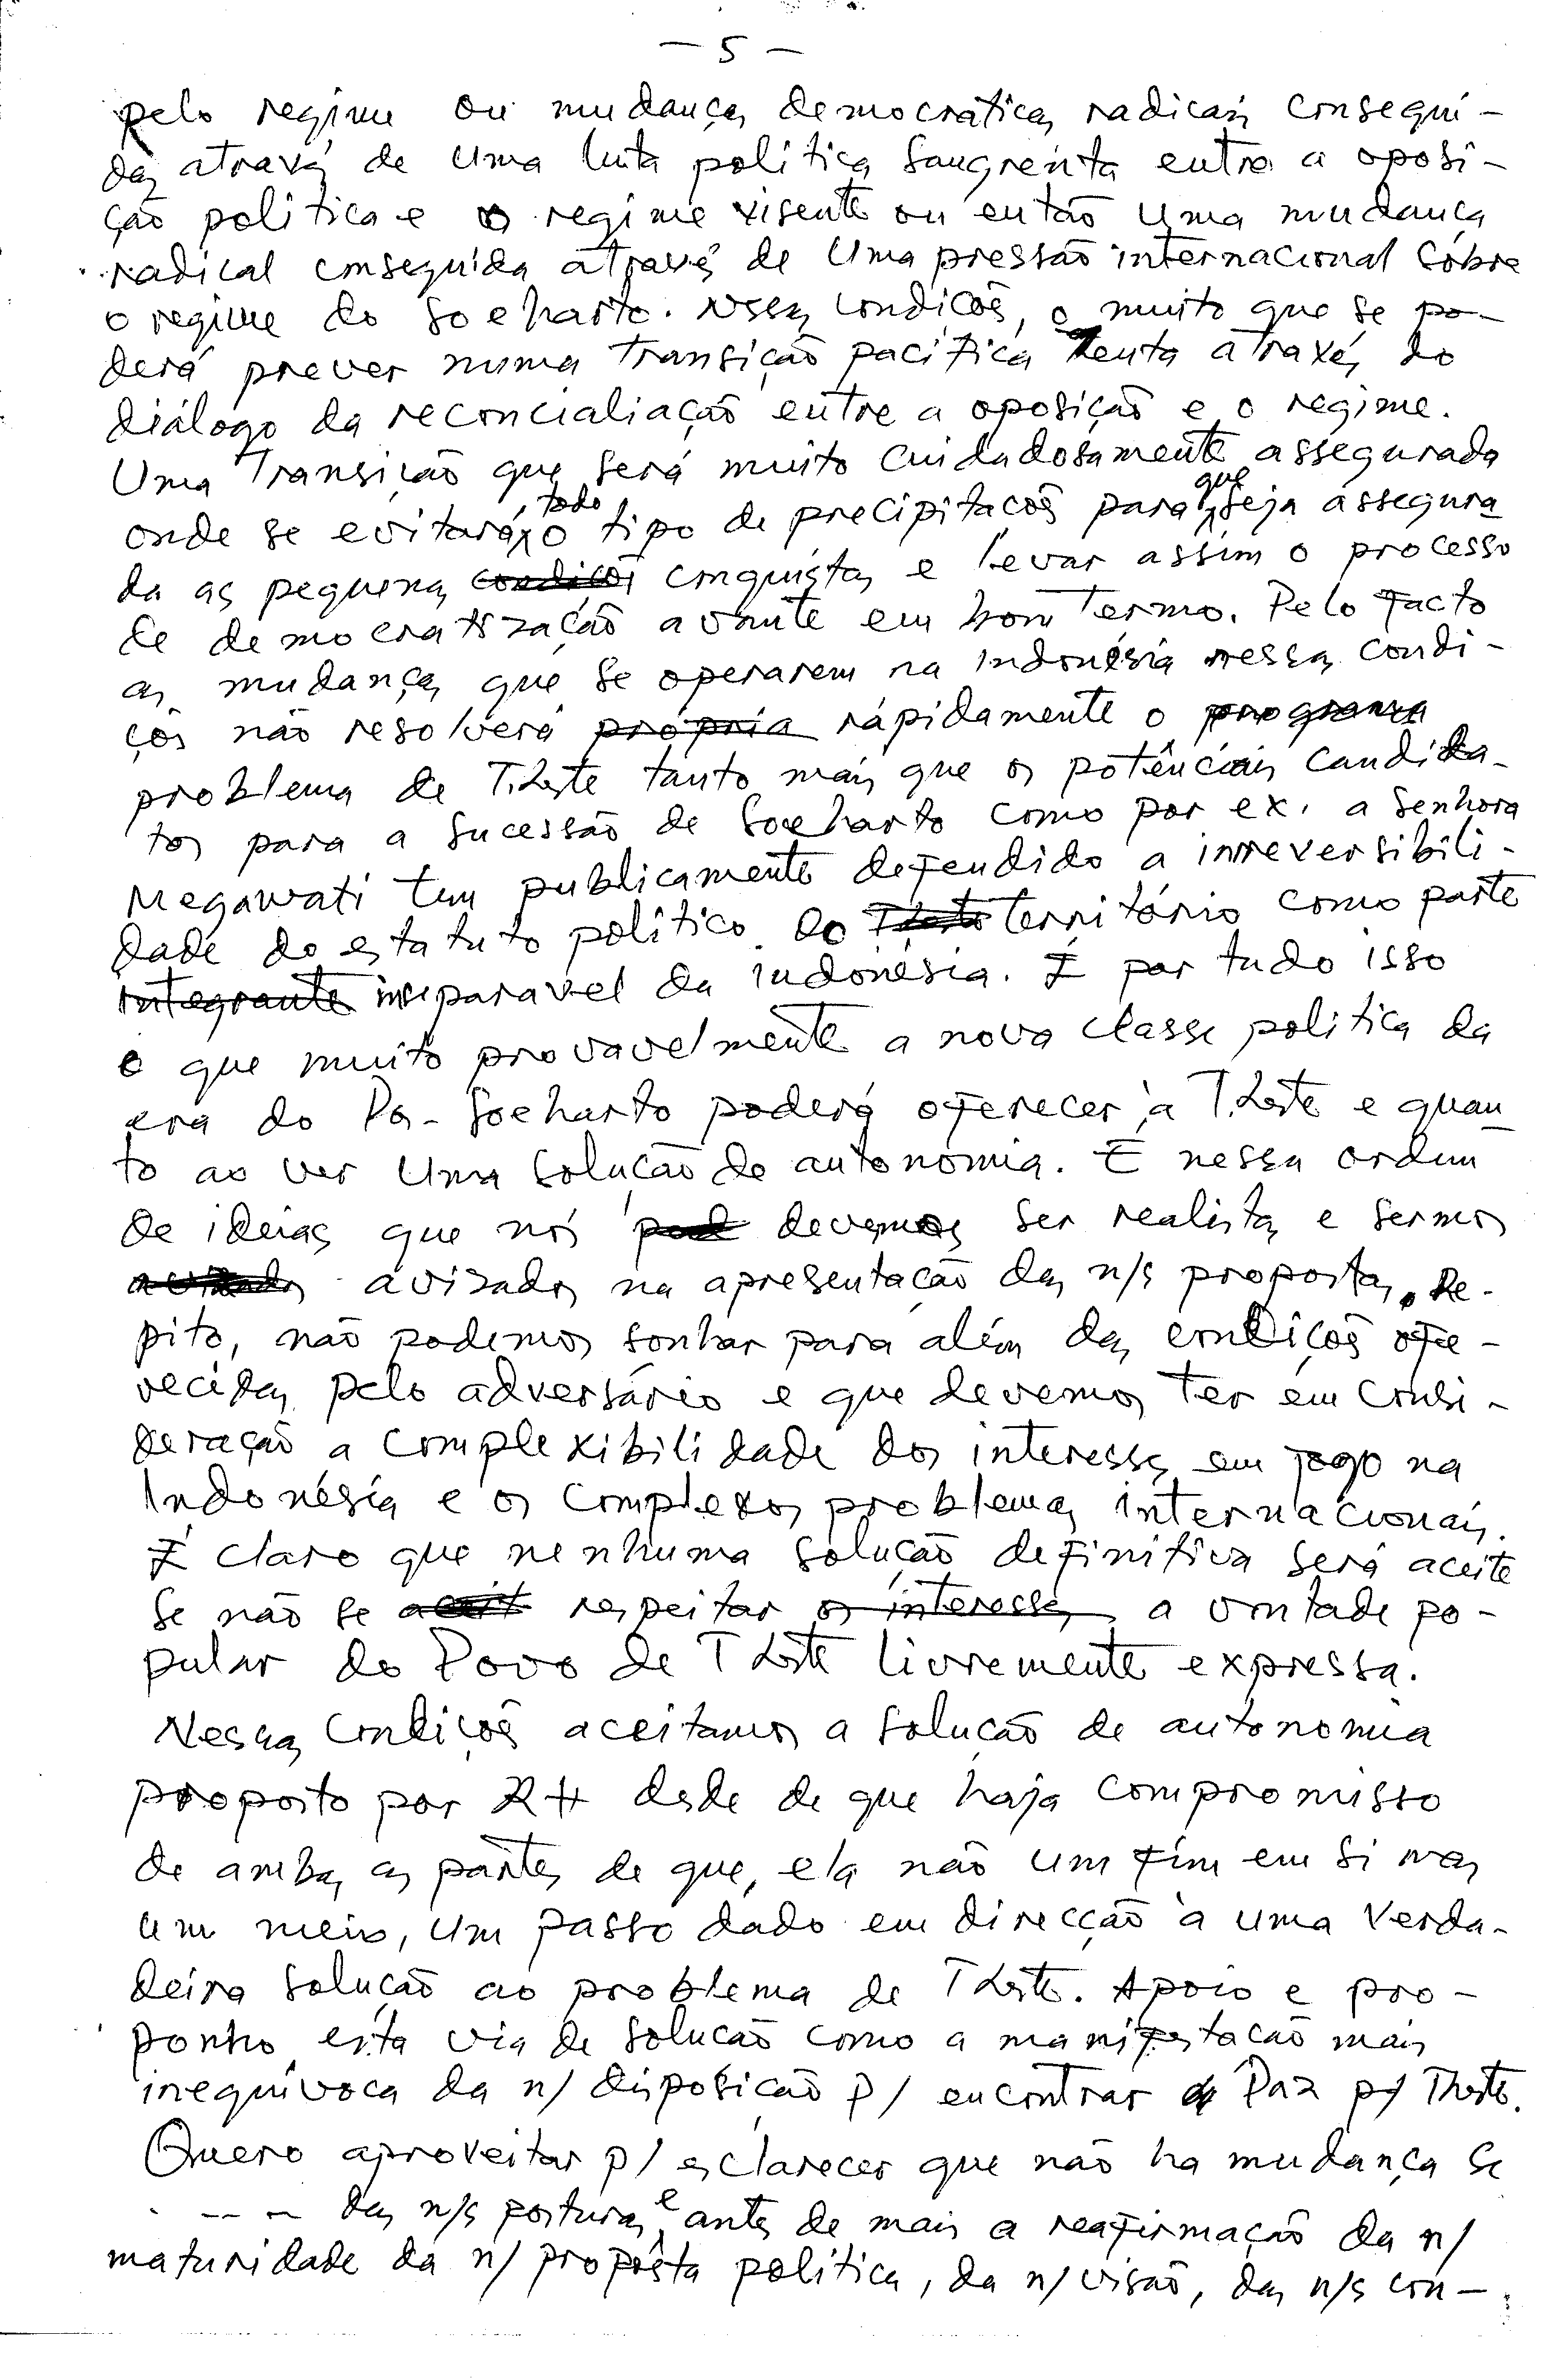 — 5 —
pelo regime ou mudanças democráticas radicais consegui-
das através de uma luta politica sangrenta entre a oposi-
ção politica e o regime visente ou então uma mudança
radical conseguida através de uma pressão internacional sôbre
o regime do Soeharto. Nssas condições, o muito que se po-
derá prever numa transição pacífica lenta através do
diálogo da reconcialiação entre a oposição e o regime.
Uma transição que será muito cuidadosamente assegurada
onde se evitará, todo o tipo de precipitações para que seja assegura
da as pequenas condições conquistas e levar assim o processo
de democratização avante em bom termo. Pelo facto
as mudanças que se operarem na Indonésia nessas condi-
ções não resolverá própria rápidamente o programa
problema de T.Leste tanto mais que os potênciais candida-
tos para a sucessão de Soeharto como por ex. a senhora
Megawati tem publicamente defendido a irreversibili-
dade do estatuto político do T Leste território como parte
integrante inseparável da indonésia. É por tudo isso
o que muito provavelmente a nova classe politica da
era do Pós-Soeharto poderá oferecer à T.Leste e quan
to ao ver uma solução de autonomia. É nessa ordem
de ideias que nós pod devemos ser realistas e sermos
avisados avisados na apresentação das n/s propostas. Re-
pito, não podemos sonhar para além das condições ofe-
recidas pelo adversário e que devemos ter em consi-
deração a complexibilidade dos interesses em jogo na
Indonésia e os complexos problemas internacionais.
É claro que nenhuma solução definitiva será aceite
se não se aceit respeitar os interesses a vontade po-
pular do Povo de T Leste livremente expressa.
Nessas condições aceitamos a solução de autonomia
proposto por RH desde de que haja compromisso
de ambas as partes de que, ela não um fim em si mas
um meio, um passo dado em direcção à uma verda-
deira solução ao problema de T Leste. Apoio e pro-
ponho esta via de solução como a manifestação mais
inequívoca da n/ disposição p/ encontrar a Paz p/ TLeste.
Quero aproveitar p/ esclarecer que não ha mudança se
. -- - das n/s posturas e antes de mais a reafirmação da n/
maturidade da n/ propôsta politica, da n/ visão, das n/s con-